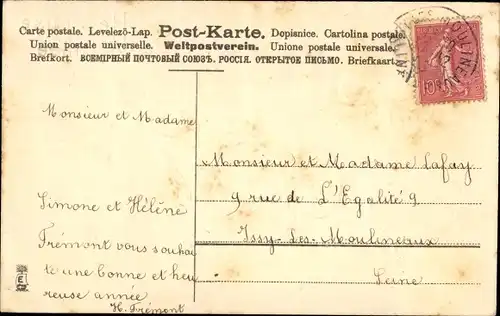 Carte postale. Levelező-Lap. Post-Karte. Dopisnice. Cartolina postale.
Union postale universelle. Weltpostverein. Unione postale universale.
Brefkort. ВСЕМІРНЫЙ ПОЧТОВЫЙ СОЮЗЪ. РОССІЯ. ОТКРЫТОЕ ПИСЬМО. Briefkaart.
MOULINEAUX
10
Monsieur et Madame
Simone et Hélène
Frémont vous souhai
te une bonne et heu
reuse année
H. Frémont
Monsieur et Madame Lafay
9 rue de L'Egalité 9
Issy-Les-Moulineaux
Seine
E